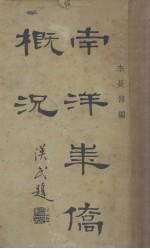 李長傅編
南洋華僑
概況
漢民題